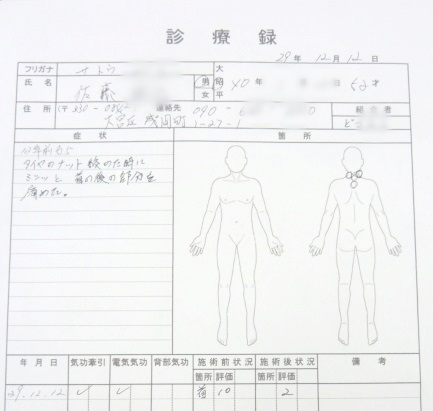 診療録
29年 12月 12日
フリガナ サトウ
氏名 佐藤 男 女 大 昭 平 40年 52才
住所 (〒330- 連絡先 090-
大宮区 浅間町 1-27-1
紹介者
症状 箇所
タイヤのナット 締めた時に
ミシッと 首の後の部分を
痛めた。
年月日 気功牽引 電気気功 背部気功 施術前状況 施術後状況 備考
箇所 評価 箇所 評価
29.12.12 ✓ ✓ 首 10 2